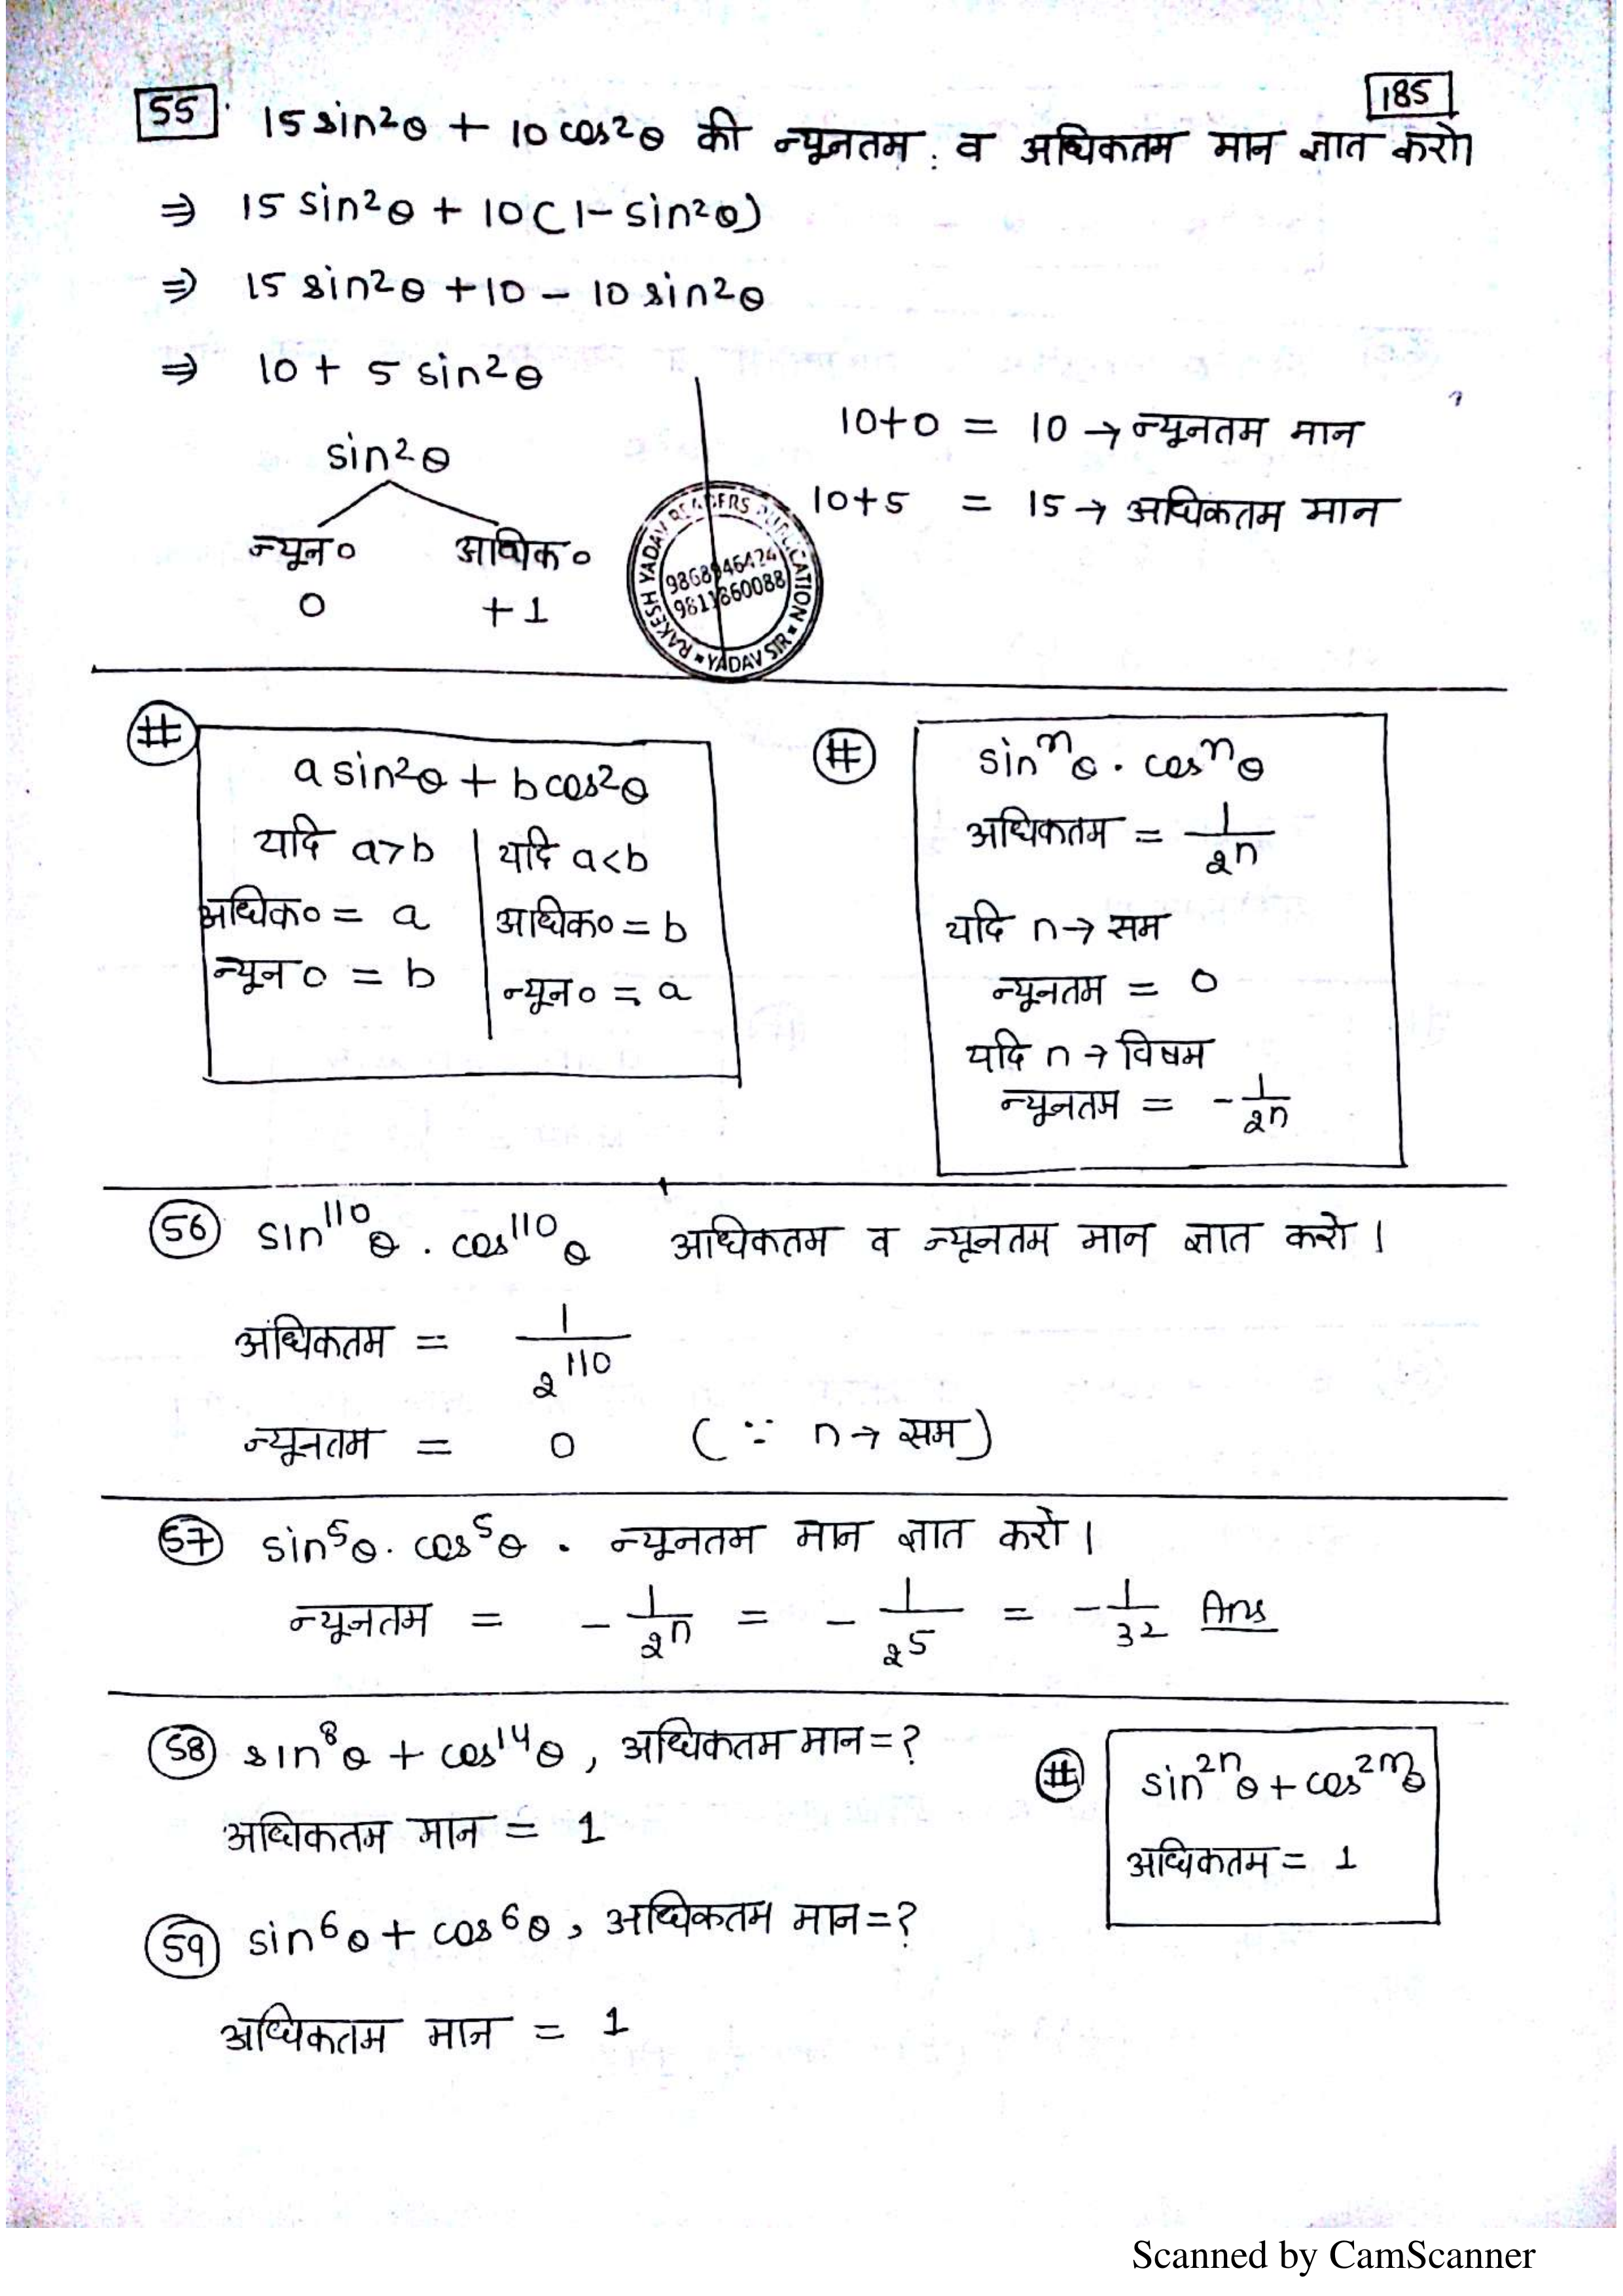 185
55. 15 sin²θ + 10 cos²θ की न्यूनतम व अधिकतम मान ज्ञात करो।
⇒ 15 sin²θ + 10(1 - sin²θ)
⇒ 15 sin²θ + 10 - 10 sin²θ
⇒ 10 + 5 sin²θ
sin²θ
न्यून० अधिक०
0 +1
10+0 = 10 → न्यूनतम मान
10+5 = 15 → अधिकतम मान
RAKESH YADAV READERS PUBLICATION
9868946424
9811860088
YADAV SIR
#
a sin²θ + b cos²θ
यदि a>b | यदि a<b
अधिक० = a | अधिक० = b
न्यून० = b | न्यून० = a
#
sinⁿθ . cosⁿθ
अधिकतम = 1/2ⁿ
यदि n → सम
न्यूनतम = 0
यदि n → विषम
न्यूनतम = -1/2ⁿ
56 sin¹¹⁰θ . cos¹¹⁰θ अधिकतम व न्यूनतम मान ज्ञात करो।
अधिकतम = 1/2¹¹⁰
न्यूनतम = 0 (∵ n → सम)
57 sin⁵θ . cos⁵θ . न्यूनतम मान ज्ञात करो।
न्यूनतम = -1/2ⁿ = -1/2⁵ = -1/32 Ans
58 sin⁸θ + cos¹⁴θ, अधिकतम मान = ?
अधिकतम मान = 1
#
sin²ⁿθ + cos²ᵐθ
अधिकतम = 1
59 sin⁶θ + cos⁶θ, अधिकतम मान = ?
अधिकतम मान = 1
Scanned by CamScanner